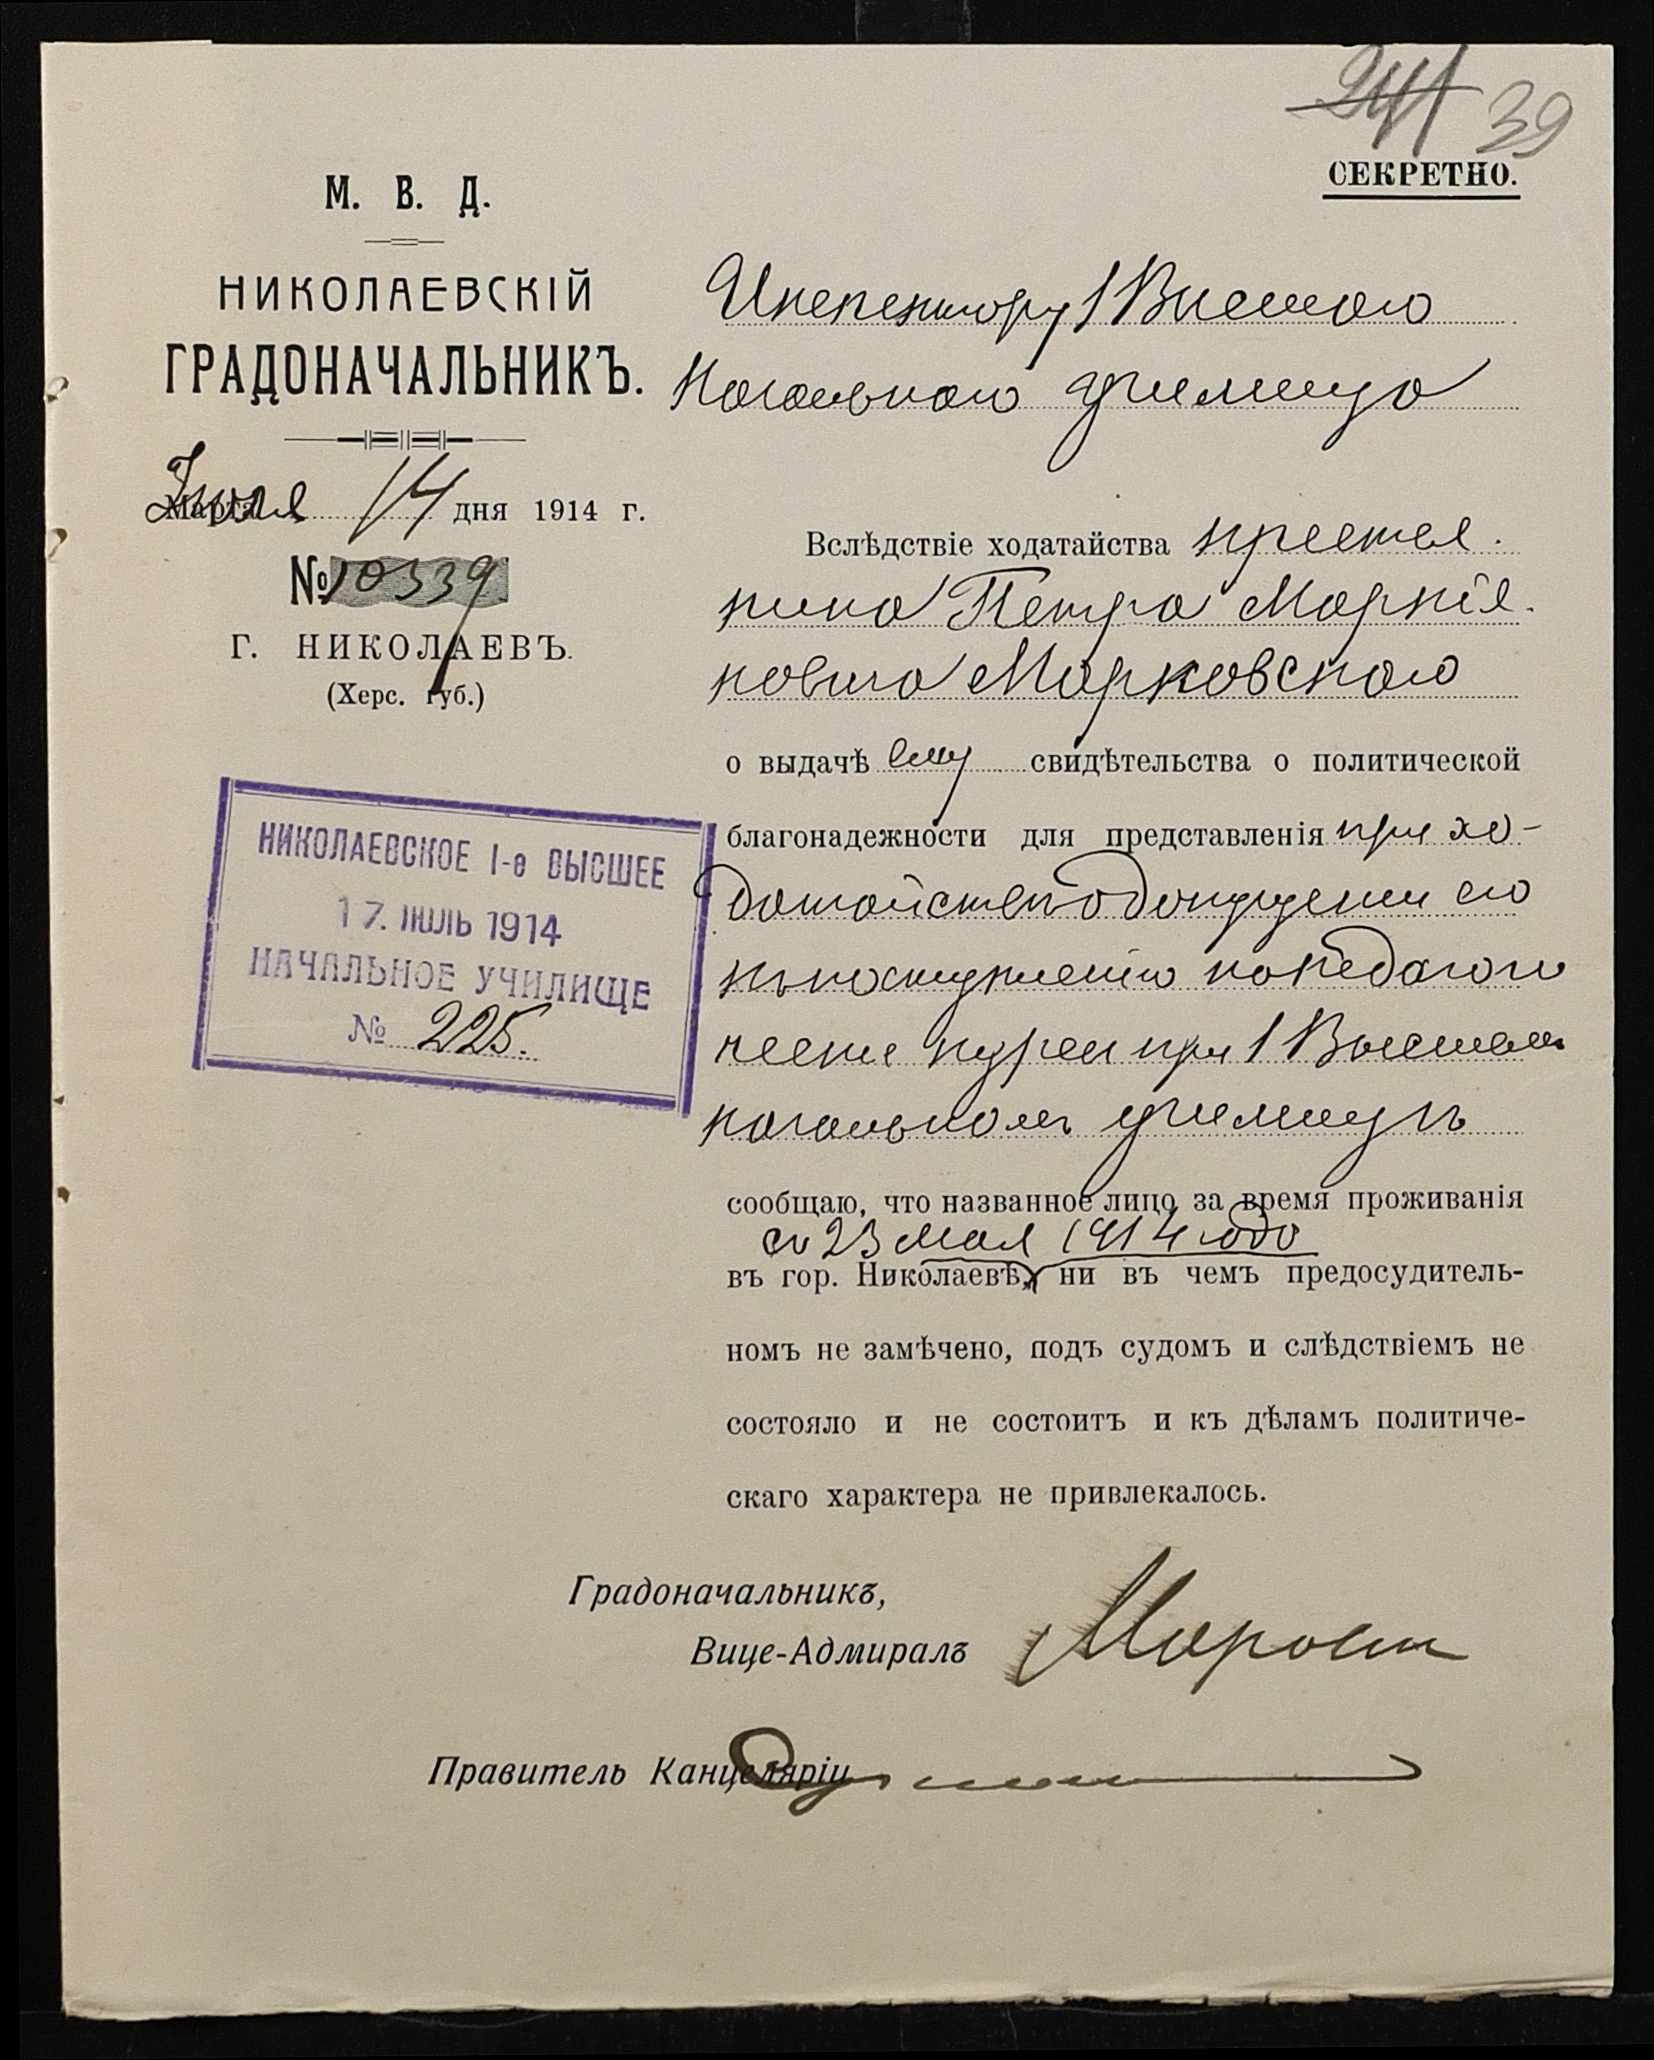 241 39
СЕКРЕТНО.
М. В. Д.
НИКОЛАЕВСКІЙ
ГРАДОНАЧАЛЬНИКЪ.
Іюля 14 дня 1914 г.
№ 10339
Г. НИКОЛАЕВЪ.
(Херс. губ.)
НИКОЛАЕВСКОЕ 1-е ВЫСШЕЕ
17. ІЮЛЬ 1914
НАЧАЛЬНОЕ УЧИЛИЩЕ
№ 225.
Инспектору 1 Высшаго
Начальнаго училища
Вслѣдствіе ходатайства крестья
нина Петра Маркія
новича Марковскаго
о выдачѣ ему свидѣтельства о политической
благонадежности для представленія при хо-
датайствѣ о допущеніи его
къ поступленію на педагоги
ческіе курсы при 1 Высшемъ
начальномъ училищѣ
сообщаю, что названное лицо за время проживанія
съ 23 мая 1914 года
въ гор. Николаевѣ, ни въ чемъ предосудитель-
номъ не замѣчено, подъ судомъ и слѣдствіемъ не
состояло и не состоитъ и къ дѣламъ политиче-
скаго характера не привлекалось.
Градоначальникъ,
Вице-Адмиралъ
Правитель Канцеляріи